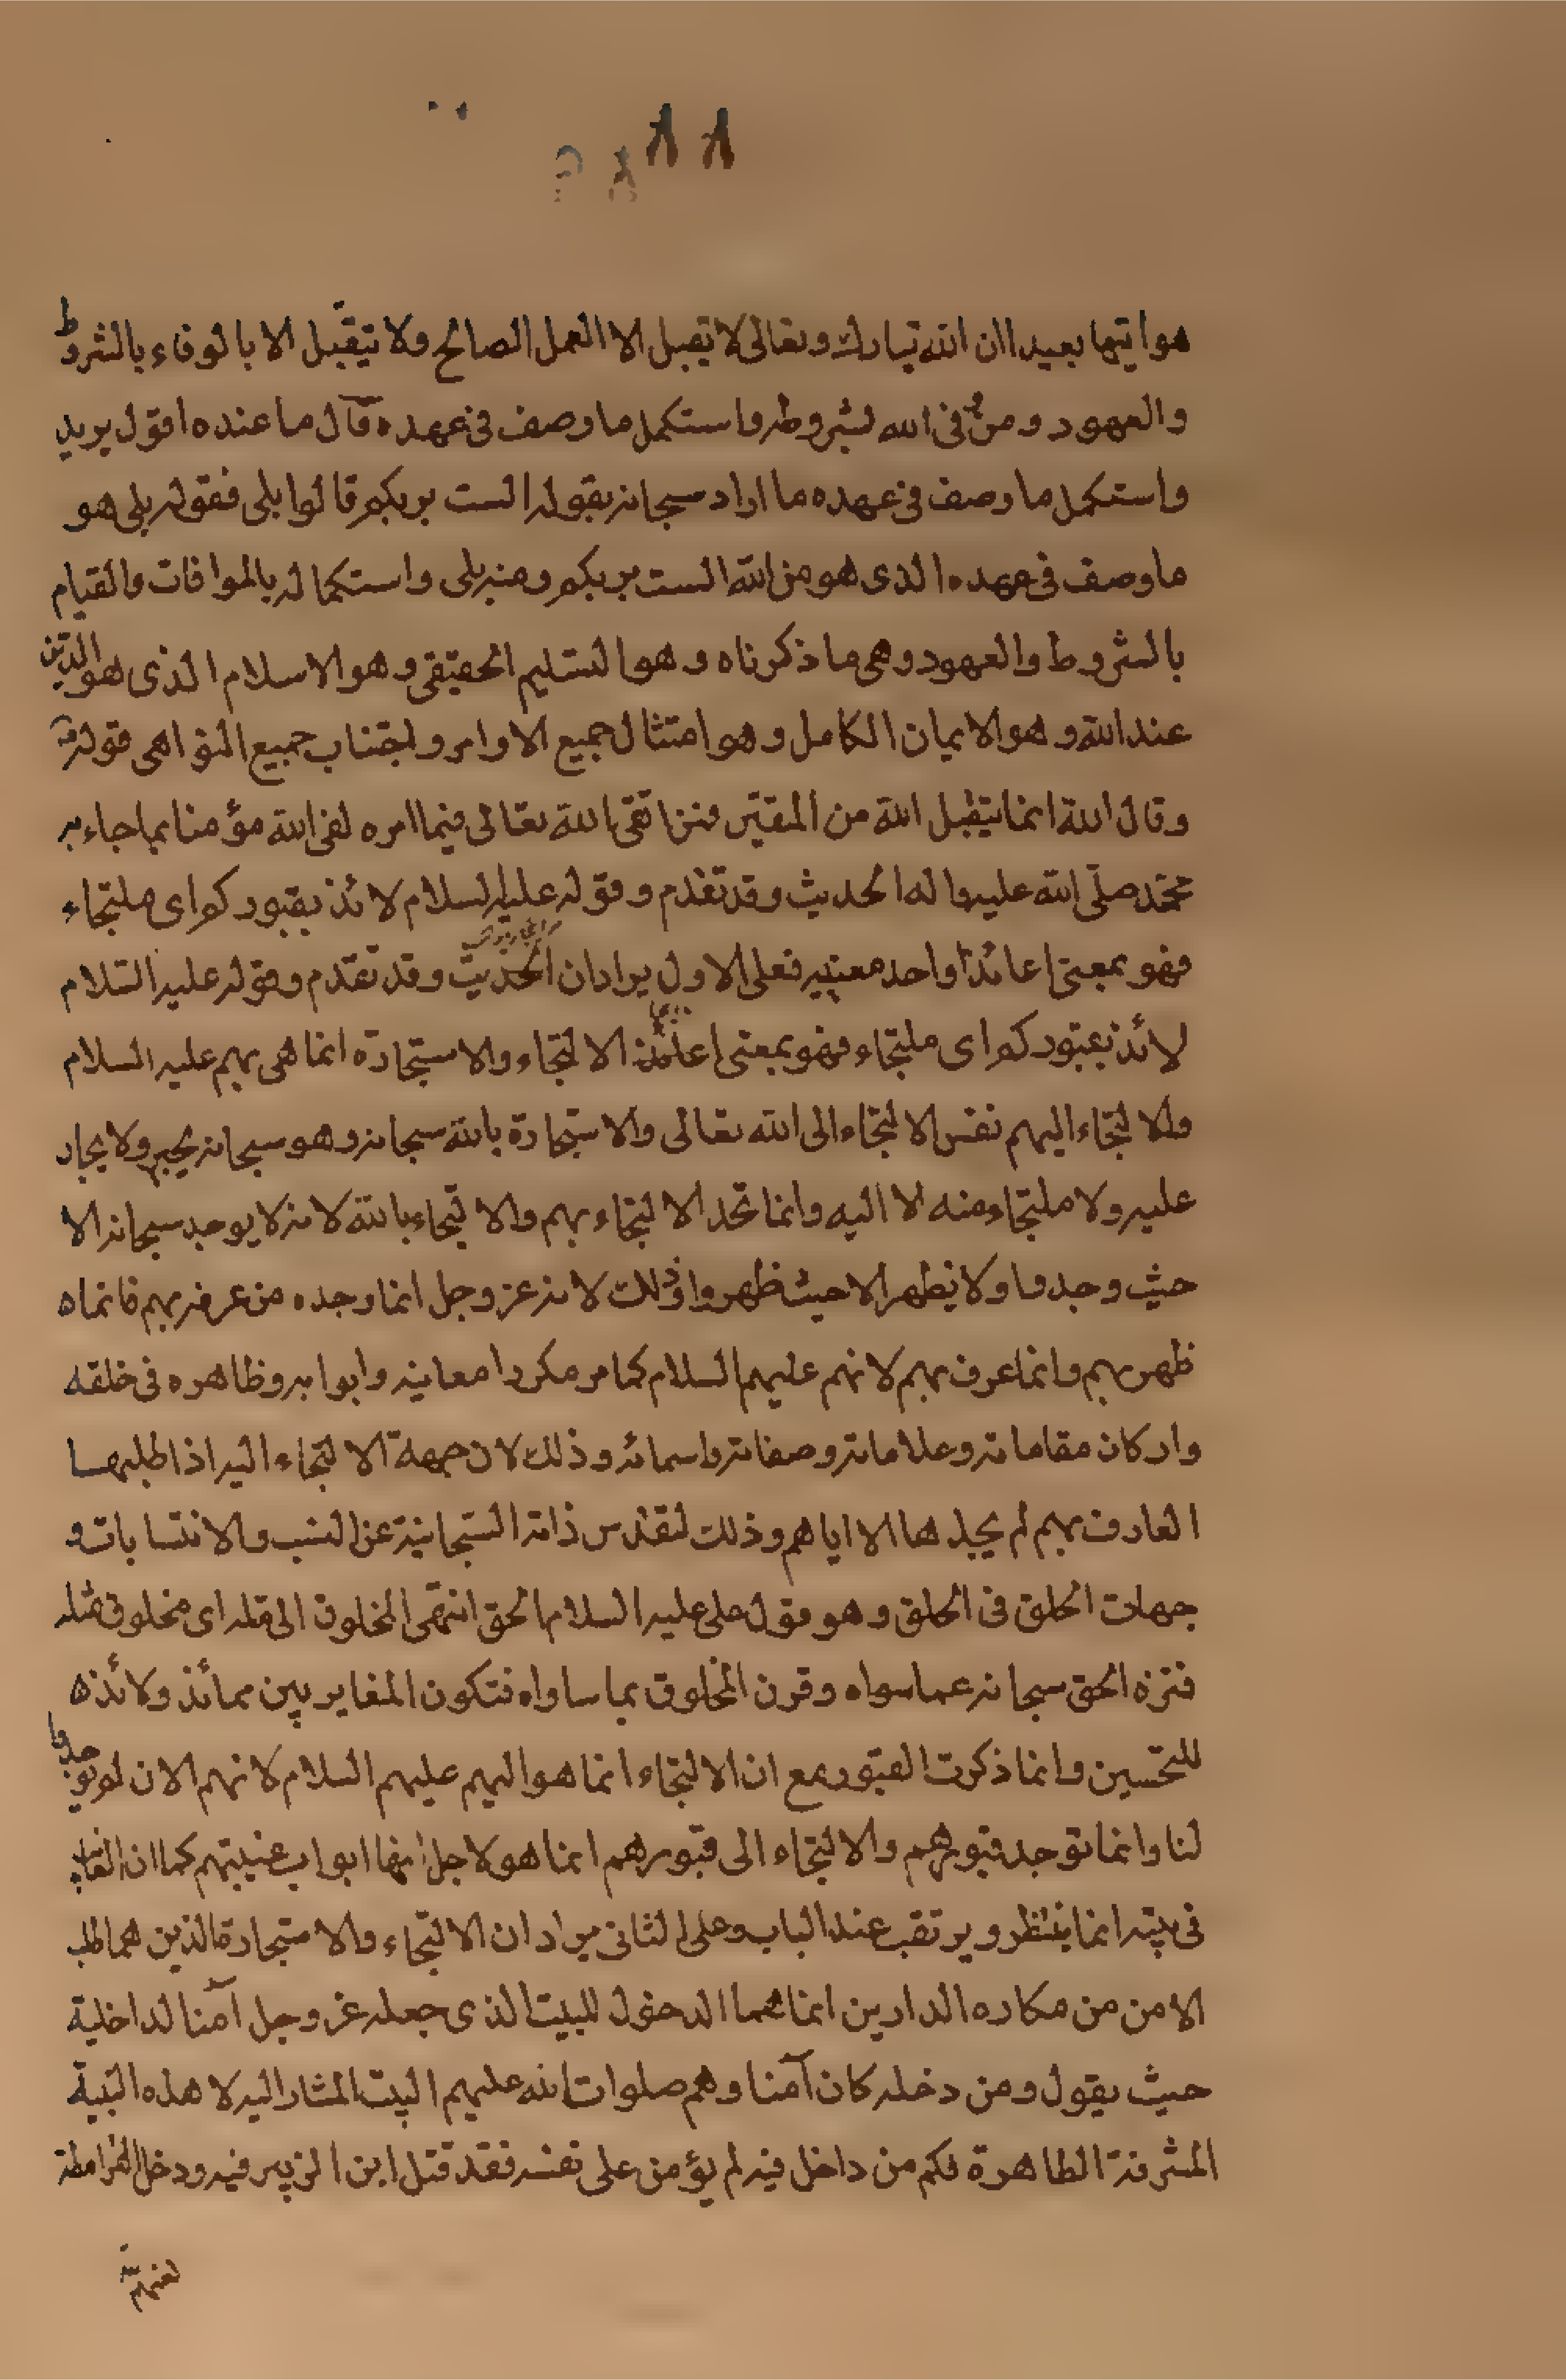 ٨٨
هوا تيها بعيدا ان الله تبارك وتعالى لا يقبل الا العمل الصالح ولا يتقبل الا بالوفاء بالشروط
والعهود ومن وفى الله بشروطه واستكمل ما وصف فى عهده قال ما عنده اقول يريد
واستكمل ما وصف فى عهده ما اراد سبحانه بقوله الست بربكم قالوا بلى فقوله بلى هو
ما وصف فى عهده الذى هو من الله الست بربكم ومنه بلى واستكماله بالموافات والقيام
بالشروط والعهود وهى ما ذكرناه وهو التسليم الحقيقى وهو الاسلام الذى هو الدين
عند الله وهو الايمان الكامل وهو امتثال جميع الاوامر واجتناب جميع النواهى قوله
وقال الله انما يتقبل الله من المتقين فمن اتقى الله تعالى فيما امره لقى الله مؤمنا بما جاء به
محمد صلى الله عليه واله الحديث وقد تقدم وقوله عليه السلام لائذ بقبوركم اى ملتجاء
فهو بمعنى عائذا واحد معنييه فعلى الاول يراد ان الحديث وقد تقدم وقوله عليه السلام
لائذ بقبوركم اى ملتجاء فهو بمعنى الالتجاء والاستجارة انما هى بهم عليه السلام
والالتجاء اليهم نفس الالتجاء الى الله تعالى والاستجارة بالله سبحانه وهو سبحانه يجير ولا يجار
عليه ولا ملتجاء منه الا اليه وانما تحد الالتجاء بهم والالتجاء بالله لانه لا يوجد سبحانه الا
حيث وجدوا ولا يظهر الا حيث ظهروا وذلك لانه عز وجل انما وجده من عرفه بهم فانما
ظهر بهم وانما عرف بهم لانهم عليهم السلام كما مر مكررا معانيه وابوابه وظاهره فى خلقه
واركان مقاماته وعلاماته وصفاته واسمائه وذلك لان جهة الالتجاء اليه اذا طلبها
العارف بهم لم يجدها الا اياهم وذلك لتقدس ذاته السبحانية عن النسب والانتسابات و
جهات الخلق فى الخلق وهو قول على عليه السلام الحق انتهى المخلوق الى مثله اى مخلوق مثله
فتزه الحق سبحانه عما سواه وقرن المخلوق بما ساواه فتكون المغاير بين عائذ ولائذ
للتحسين وانما ذكرت القبور مع ان الالتجاء انما هو اليهم عليهم السلام لانهم الان لم يوجدوا
لنا وانما توجد قبورهم والالتجاء الى قبورهم انما هو لاجل انها ابواب غيبتهم كما ان الغايب
فى بيته انما ينتظر ويرتقب عند الباب وعلى الثانى يراد ان الالتجاء والاستجارة الذين هما طلب
الامن من مكاره الدارين انما هما الدخول للبيت الذى جعله عز وجل آمنا لداخليه
حيث يقول ومن دخله كان آمنا وهم صلوات الله عليهم البيت المشار اليه لا هذه البنية
المشرفة الطاهرة فكم من داخل فيه لم يؤمن على نفسه فقد قتل ابن الزبير فيه ودخل القرامطة
لعنهم الله